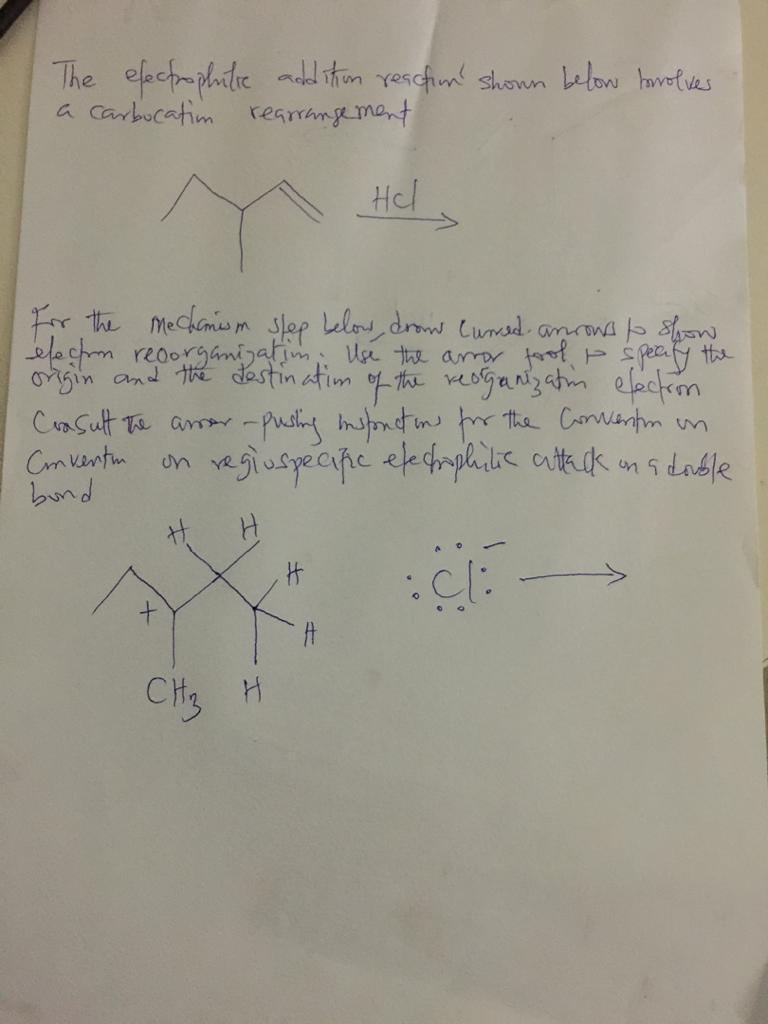 The electrophilic addition reaction shown below involves
a carbocation rearrangement
HCl
For the mechanism step below, draw curved arrows to show
electron reoorganization. Use the arrow tool to specify the
origin and the destination of the reorganization electron
Consult the arrow-pushing instructions for the Convention on
Convention on regiospecific electrophilic attack on a double
bond
H H
H
:Cl: −
+
H
CH3 H